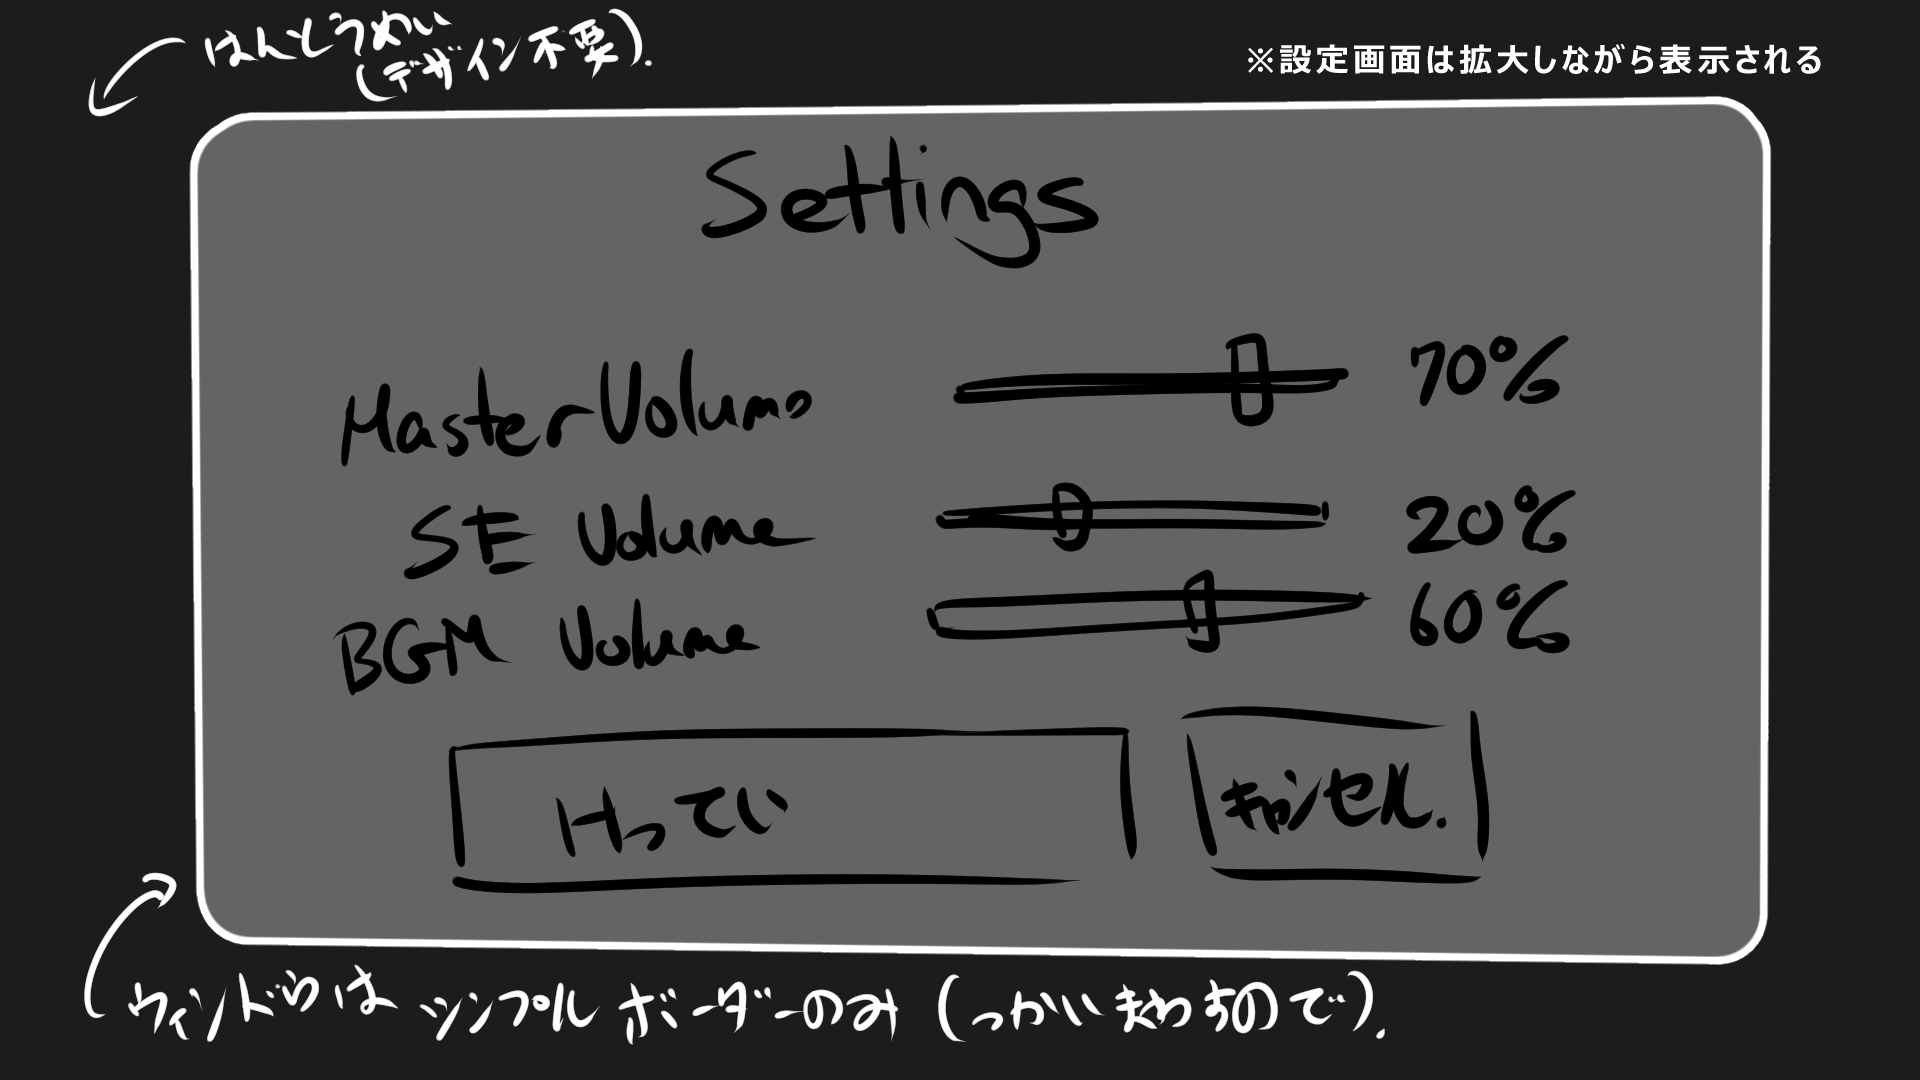 はんとうめい
(デザイン不要).
※設定画面は拡大しながら表示される
Settings
Master Volume 70%
SE Volume 20%
BGM Volume 60%
けってい
キャンセル.
ウィンドウは シンプル ボーダーのみ (つかいまわすので).